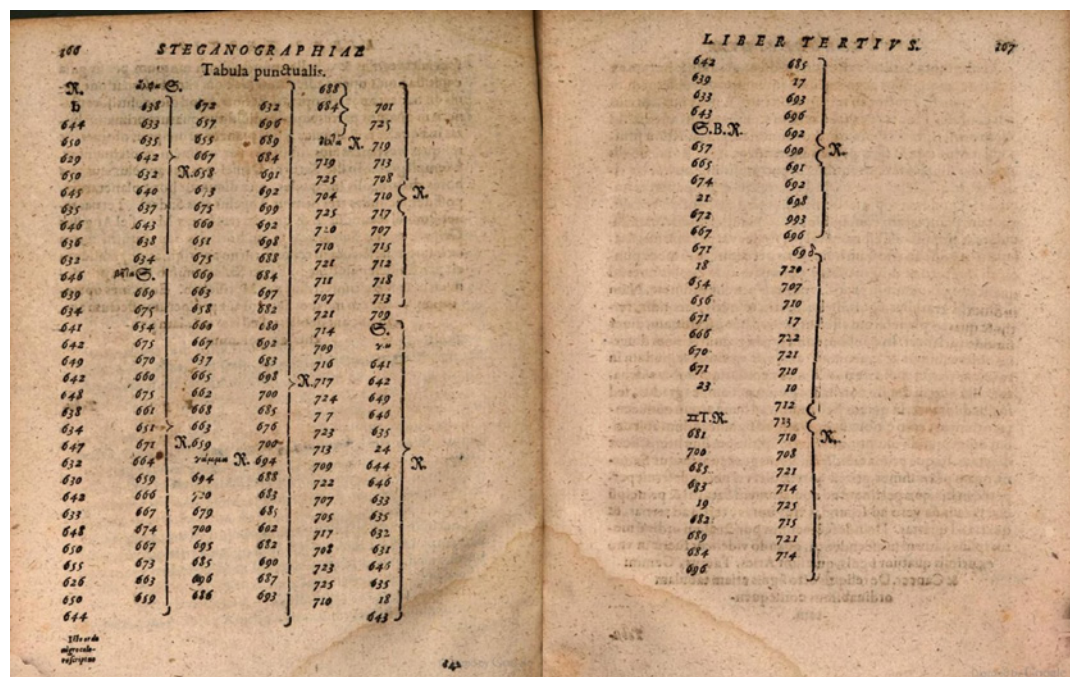 166
STEGANOGRAPHIAE
Tabula punctualis.
R.
♄
644
650
629
650
645
635
646
636
632
646
639
634
641
642
649
642
648
638
634
647
632
630
642
633
648
650
655
626
650
644
S.
638
633
635
642
632
640
637
643
638
634
S.
669
675
654
675
670
660
675
661
651
671
664
659
666
667
674
667
673
663
659
672
657
655
667
R. 658
673
675
660
651
675
669
663
658
660
667
637
665
662
668
663
R. 659
γάμμα R.
694
720
679
700
695
685
696
686
632
696
689
684
691
692
699
692
698
688
684
697
682
680
692
683
698
700
685
676
700
694
688
683
685
602
682
690
687
693
688
684
R.
719
725
704
725
720
710
721
711
707
721
714
709
716
R. 717
724
7 7
723
713
709
722
707
705
717
708
723
725
710
701
725
719
713
708
710
717
707
715
712
718
713
709
R.
S.
641
642
649
646
635
24
644
646
633
635
632
631
646
635
18
643
R.
LIBER TERTIVS.
167
642
639
633
643
S.B.R.
657
665
674
21
672
667
671
18
654
656
671
666
670
671
23
♊T.R.
681
700
685
683
19
682
689
684
696
685
17
693
696
692
690
691
692
698
993
696
R.
720
707
710
17
722
721
710
10
712
713
710
708
721
714
725
715
721
714
R.